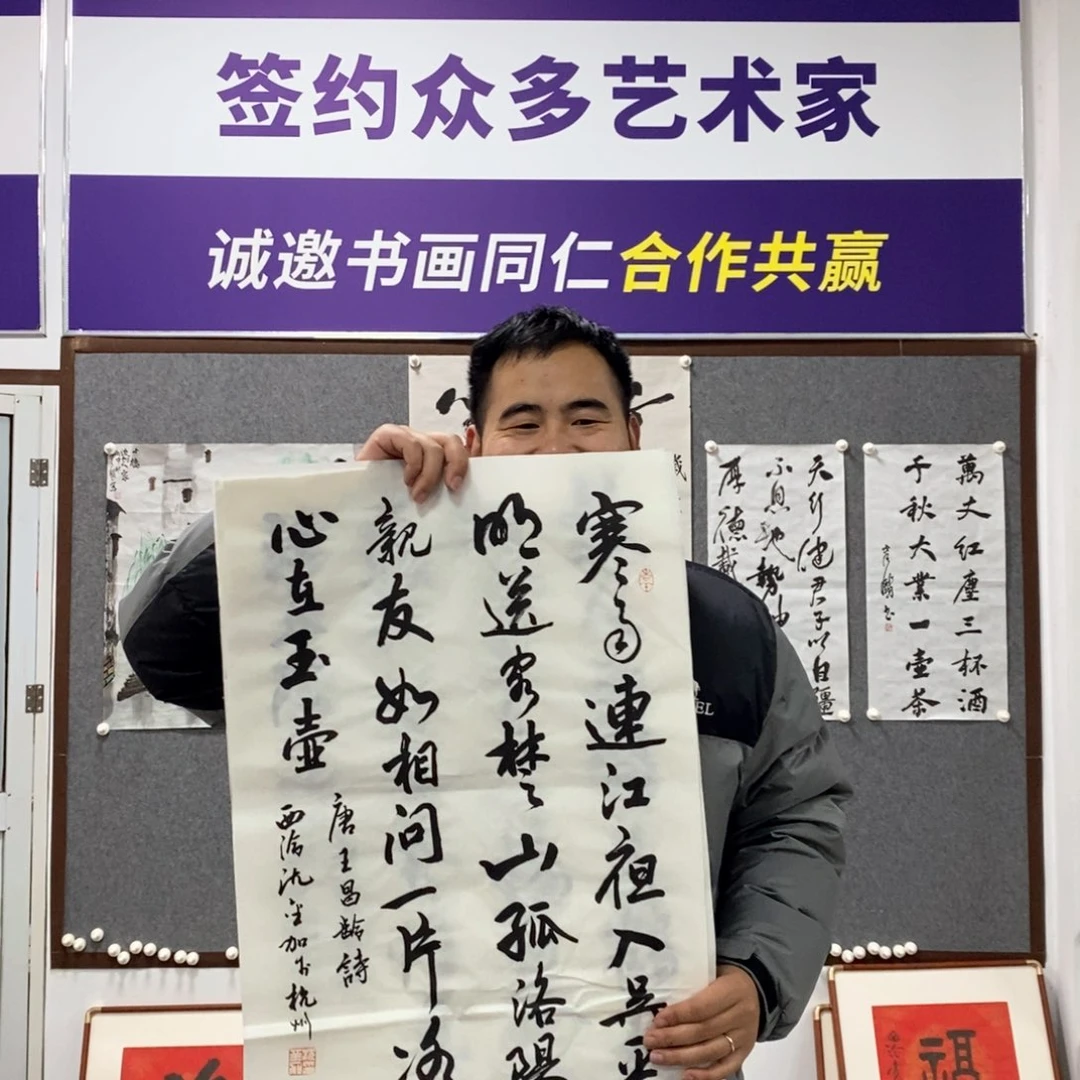 签约众多艺术家
诚邀书画同仁合作共赢
寒雨連江夜入吳平
明送客楚山孤洛陽
親友如相问一片冰
心在玉壶
唐王昌龄詩
西泠沈金加书杭州
天行健君子以自疆
不息地勢坤
厚德載
萬丈红塵三杯酒
千秋大業一壶茶
祖